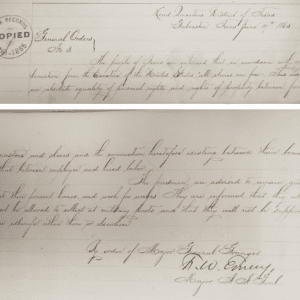 RECORDS
COPIED
1865
General Orders
No. 3
Head Quarters District of Texas
Galveston Texas June 19th 1865.
The people of Texas are informed that in accordance with a
Proclamation from the Executive of the United States "all slaves are free." This involves
an absolute equality of personal rights and rights of property between former
masters and slaves and the connection heretofore existing between them becomes
that between employer and hired labor.
The freedmen are advised to remain quietly
at their present homes, and work for wages. They are informed that they will
not be allowed to collect at military posts and that they will not be supported
in idleness either there or elsewhere.
By order of Major General Granger
F.W. Emery
Major A.A. Genl.